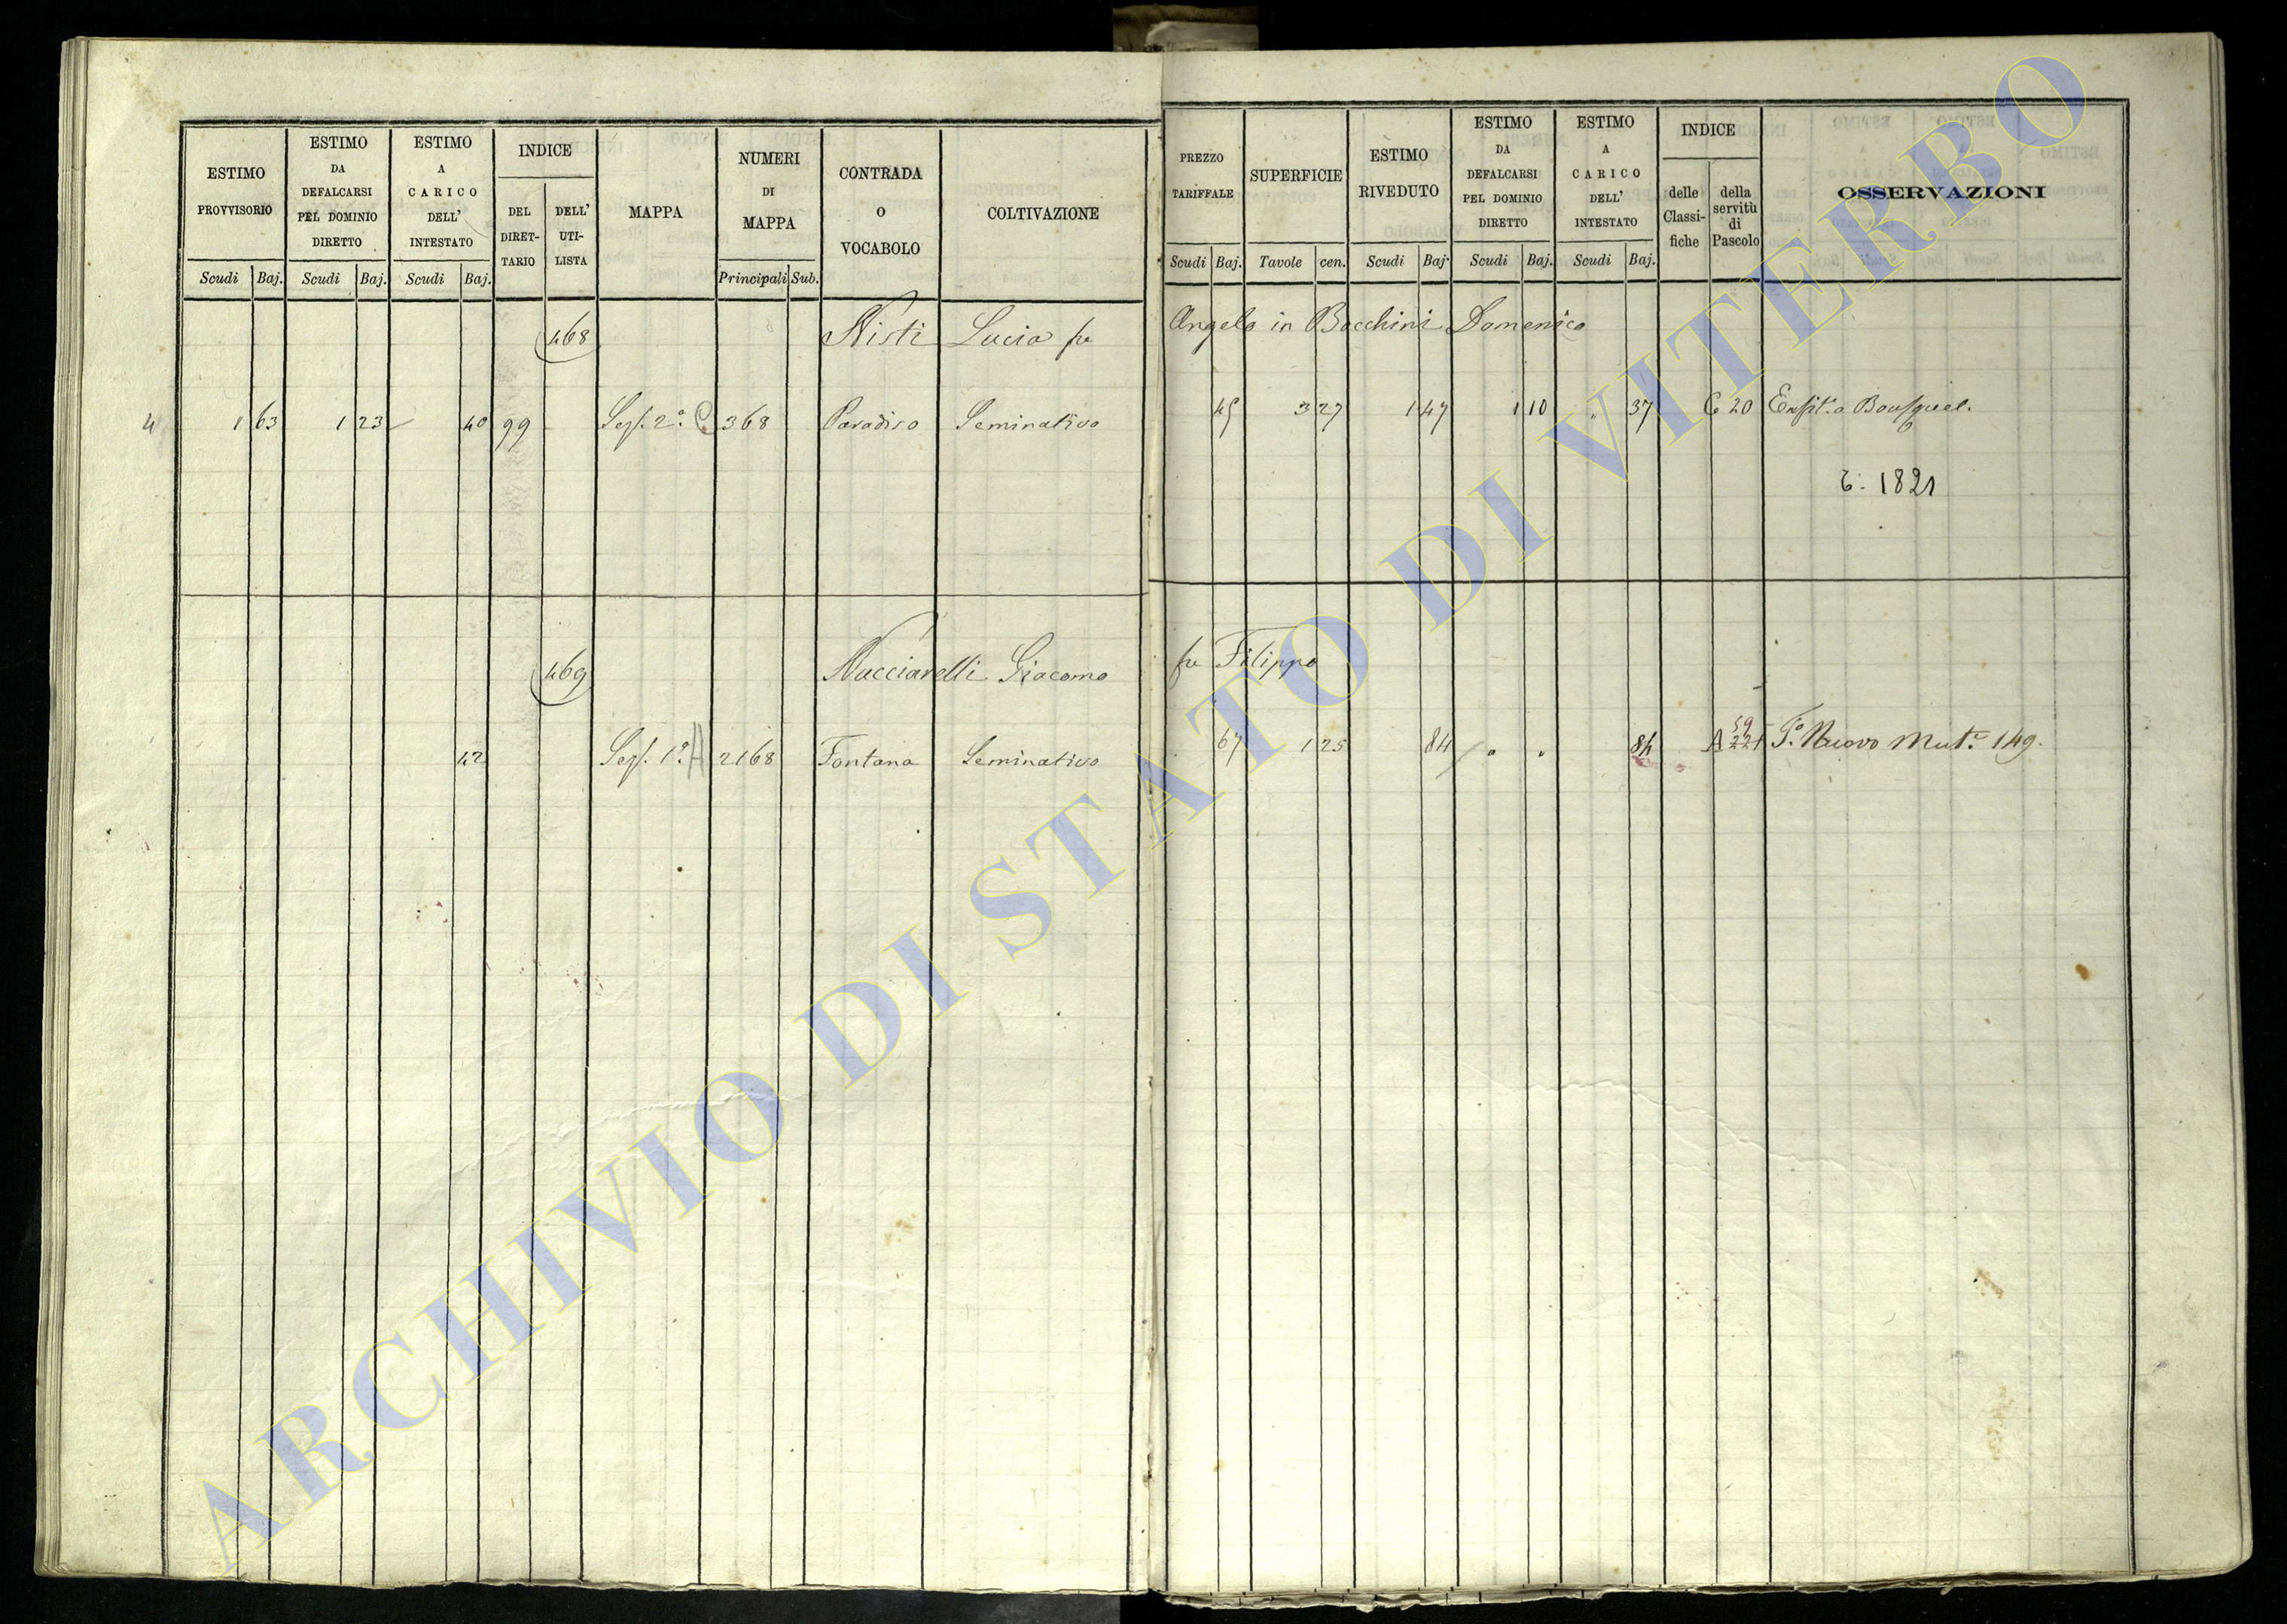 ESTIMO PROVVISORIO
Scudi Baj.
ESTIMO DA DEFALCARSI PEL DOMINIO DIRETTO
Scudi Baj.
ESTIMO A CARICO DELL' INTESTATO
Scudi Baj.
INDICE
DEL DIRET-TARIO
DELL' UTI-LISTA
MAPPA
NUMERI DI MAPPA
Principali Sub.
CONTRADA O VOCABOLO
COLTIVAZIONE
PREZZO TARIFFALE
Scudi Baj.
SUPERFICIE
Tavole cen.
ESTIMO RIVEDUTO
Scudi Baj.
ESTIMO DA DEFALCARSI PEL DOMINIO DIRETTO
Scudi Baj.
ESTIMO A CARICO DELL' INTESTATO
Scudi Baj.
INDICE
delle Classi-fiche
della servitù di Pascolo
OSSERVAZIONI
468 Nisti Lucia fu Angelo in Bacchini Domenico
4 1 63 1 23 40 99 Sez. 2ª C 368 Paradiso Seminativo 45 3 27 1 47 1 10 " 37 C 20
1821
469 Nucciarelli Giacomo fu Filippo
42 Sez. 1ª A 2168 Fontana Seminativo 67 1 25 84 " " 84 A 59 221 Fº Nuovo Mutª 149.
ARCHIVIO DI STATO DI VITERBO